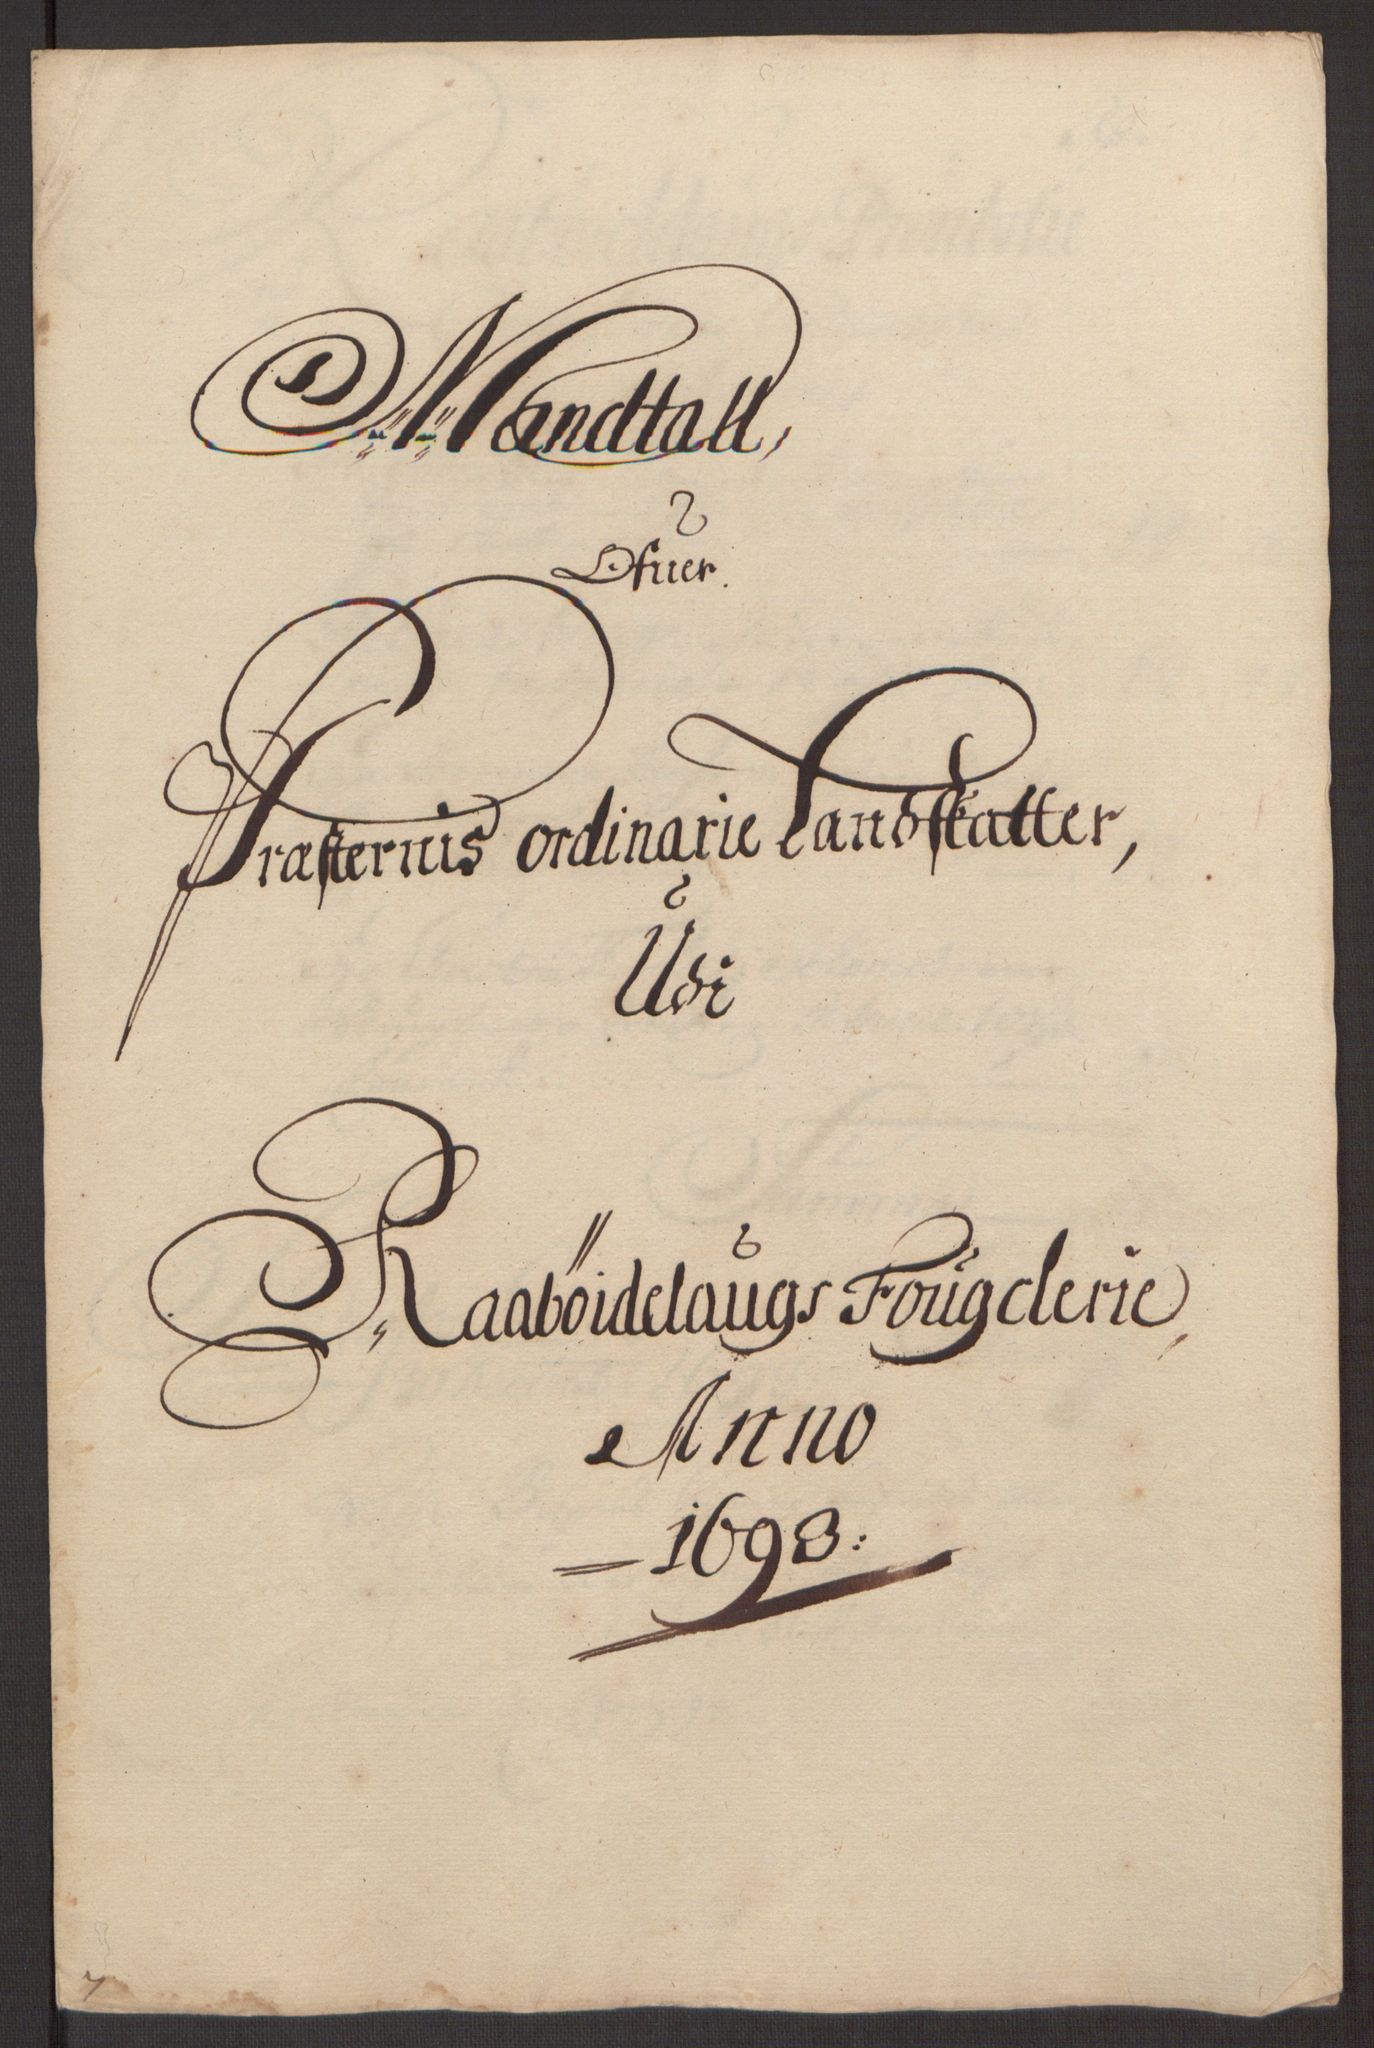 Mandtall,
Ofuer.
Præsternis ordinarie Landskatter,
Udi
Raabøidelaugs Fougderie,
Anno
1693:
7